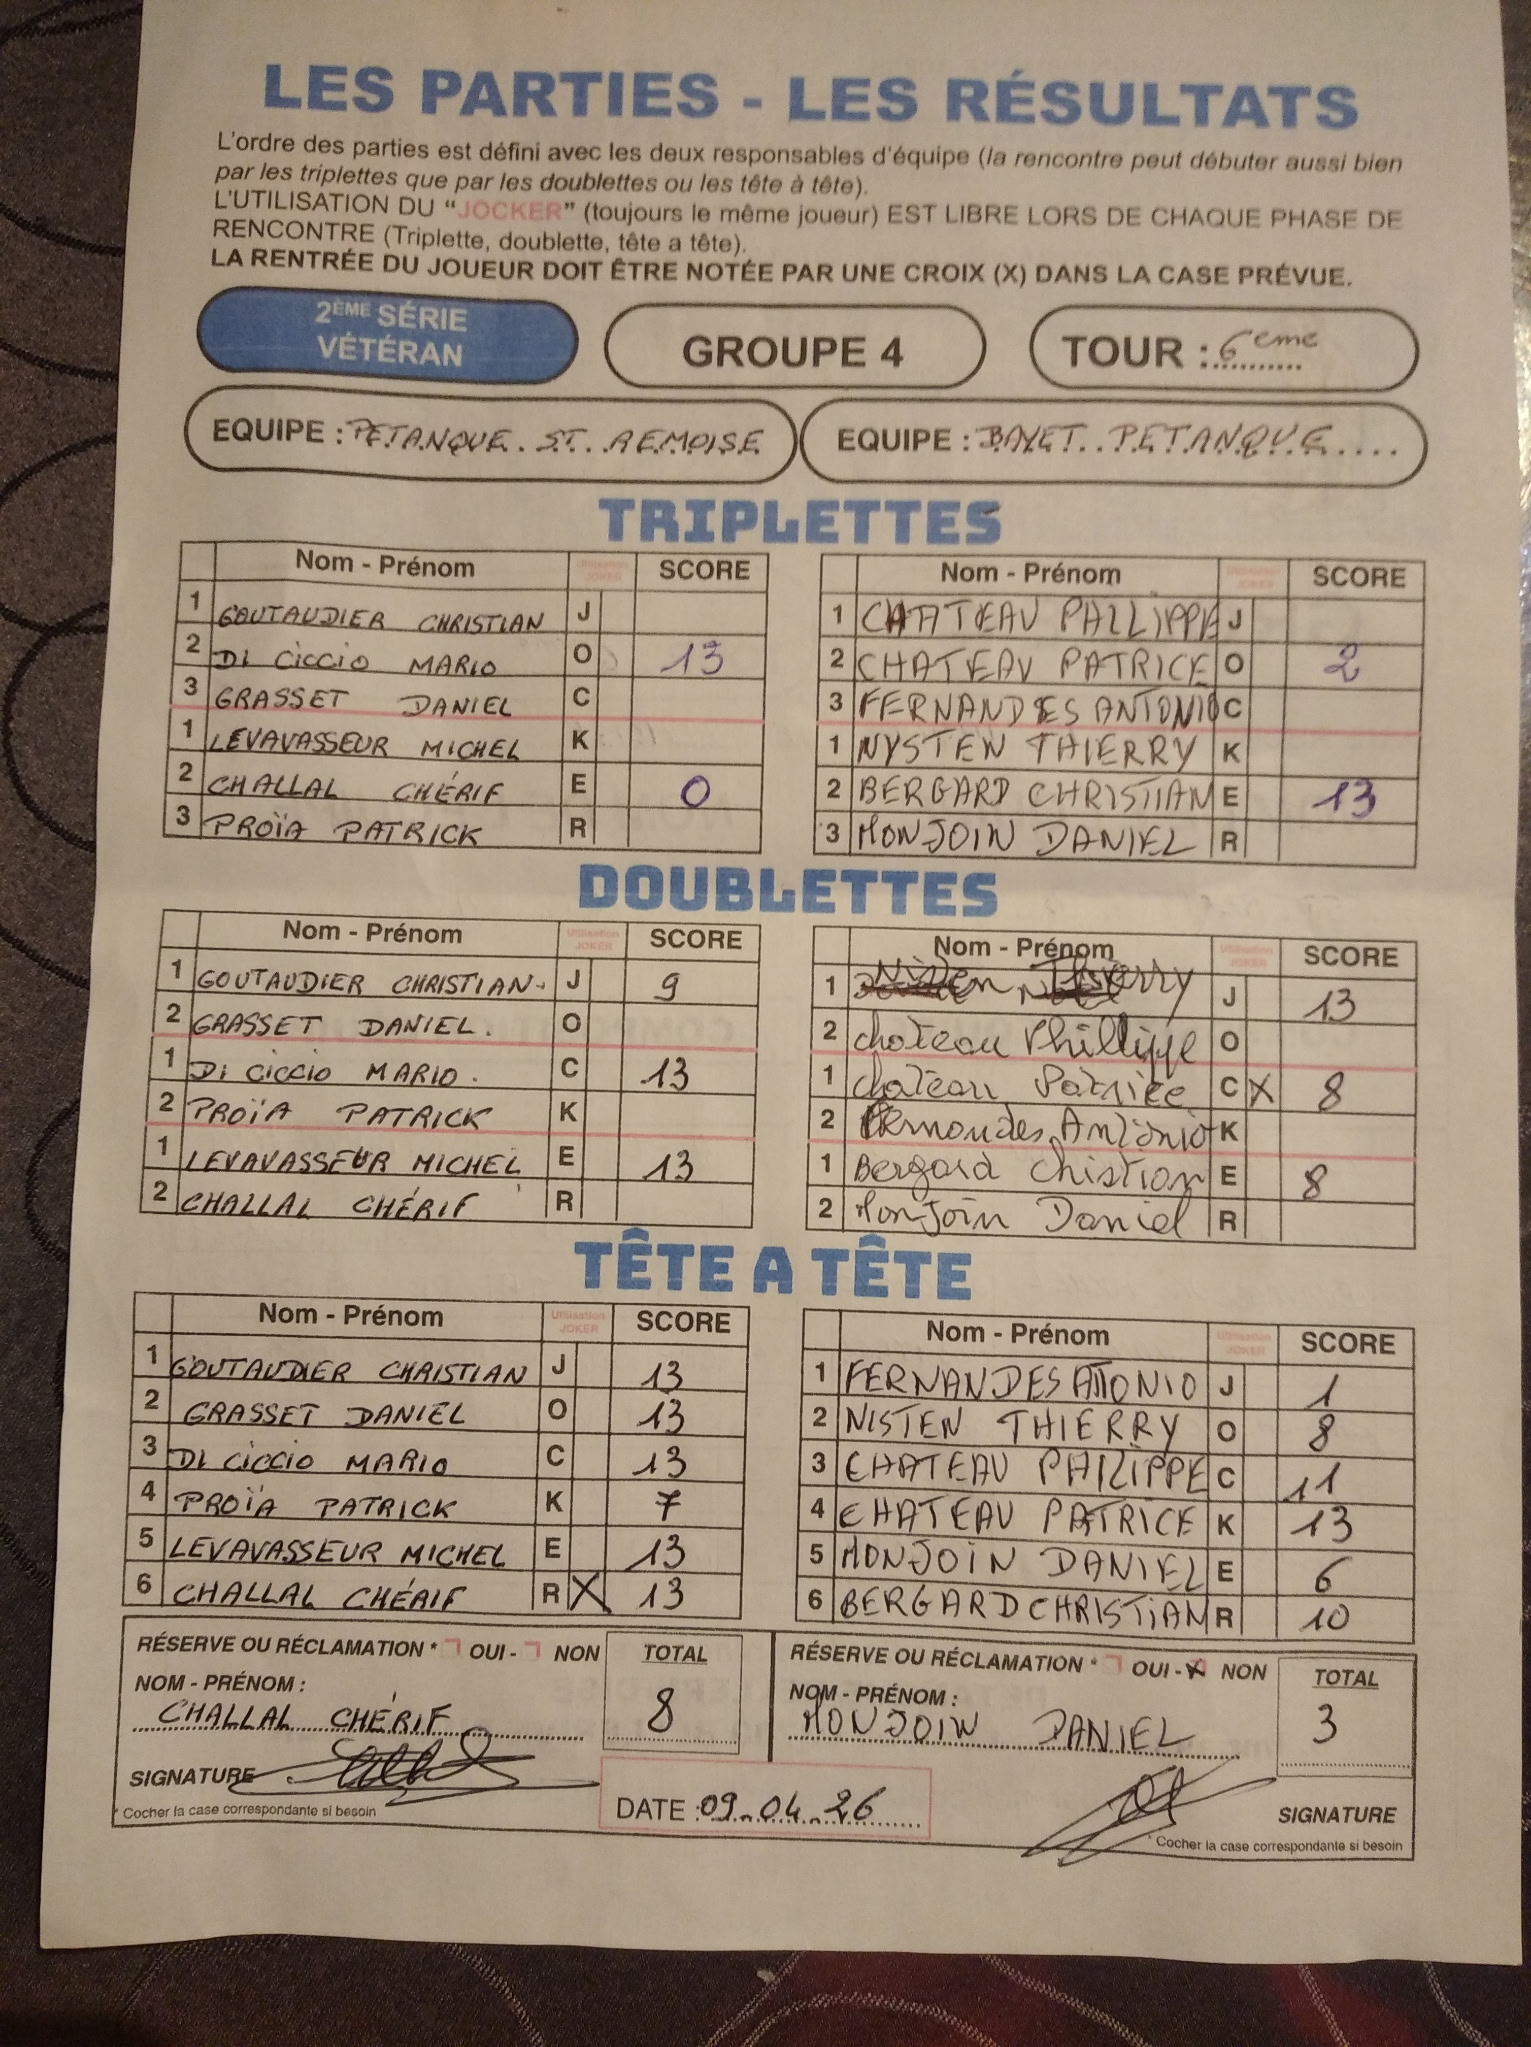 LES PARTIES - LES RÉSULTATS
L'ordre des parties est défini avec les deux responsables d'équipe (la rencontre peut débuter aussi bien
par les triplettes que par les doublettes ou les tête à tête).
L'UTILISATION DU "JOCKER" (toujours le même joueur) EST LIBRE LORS DE CHAQUE PHASE DE
RENCONTRE (Triplette, doublette, tête a tête).
LA RENTRÉE DU JOUEUR DOIT ÊTRE NOTÉE PAR UNE CROIX (X) DANS LA CASE PRÉVUE.
2ÈME SÉRIE
VÉTÉRAN
GROUPE 4
TOUR : 6eme
EQUIPE : PETANQUE ST REMOISE
EQUIPE : BAYET PETANQUE
TRIPLETTES
Nom - Prénom Utilisation JOKER SCORE Nom - Prénom Utilisation JOKER SCORE
1 GOUTAUDIER CHRISTIAN J 1 CHATEAU PHILLIPPE J
2 DI CICCIO MARIO O 13 2 CHATEAU PATRICE O 2
3 GRASSET DANIEL C 3 FERNANDES ANTONIO C
1 LEVAVASSEUR MICHEL K 1 NYSTEN THIERRY K
2 CHALLAL CHÉRIF E 0 2 BERGARD CHRISTIAN E 13
3 PROÏA PATRICK R 3 MONJOIN DANIEL R
DOUBLETTES
Nom - Prénom Utilisation JOKER SCORE Nom - Prénom Utilisation JOKER SCORE
1 GOUTAUDIER CHRISTIAN. J 9 1 Nisten Thierry J 13
2 GRASSET DANIEL. O 2 chateau Phillippe O
1 DI CICCIO MARIO. C 13 1 chateau Patrice C X 8
2 PROÏA PATRICK K 2 Fernandes Antonio K
1 LEVAVASSEUR MICHEL E 13 1 Bergard Chistian E 8
2 CHALLAL CHÉRIF R 2 Monjoin Daniel R
TÊTE A TÊTE
Nom - Prénom Utilisation JOKER SCORE Nom - Prénom Utilisation JOKER SCORE
1 GOUTAUDIER CHRISTIAN J 13 1 FERNANDES ATTONIO J 1
2 GRASSET DANIEL O 13 2 NISTEN THIERRY O 8
3 DI CICCIO MARIO C 13 3 CHATEAU PHILIPPE C 11
4 PROÏA PATRICK K 7 4 CHATEAU PATRICE K 13
5 LEVAVASSEUR MICHEL E 13 5 MONJOIN DANIEL E 6
6 CHALLAL CHÉRIF R X 13 6 BERGARD CHRISTIAN R 10
RÉSERVE OU RÉCLAMATION * OUI - NON TOTAL RÉSERVE OU RÉCLAMATION * OUI - X NON TOTAL
NOM - PRÉNOM : NOM - PRÉNOM :
CHALLAL CHÉRIF 8 MONJOIN DANIEL 3
SIGNATURE DATE : 09.04.26 SIGNATURE
* Cocher la case correspondante si besoin * Cocher la case correspondante si besoin